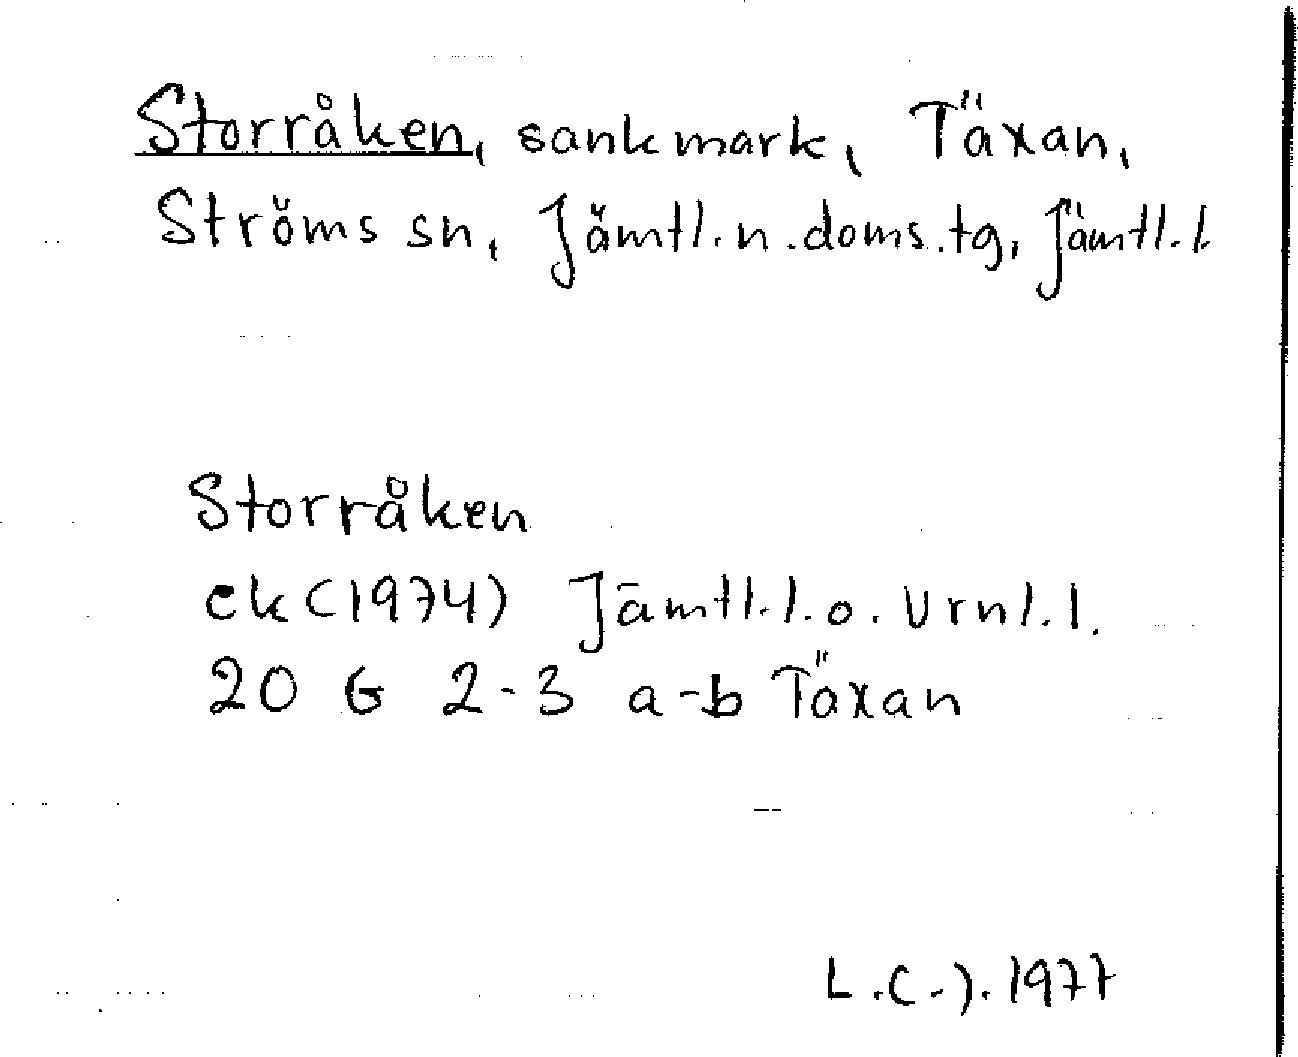 Storråken, sankmark, Täxan,
Ströms sn, Jämtl.n.doms.tg, Jämtl.l.
Storråken
ek (1974) Jämtl.l.o. Vrnl.l.
20 G 2-3 a-b Täxan
L.C.J. 1977